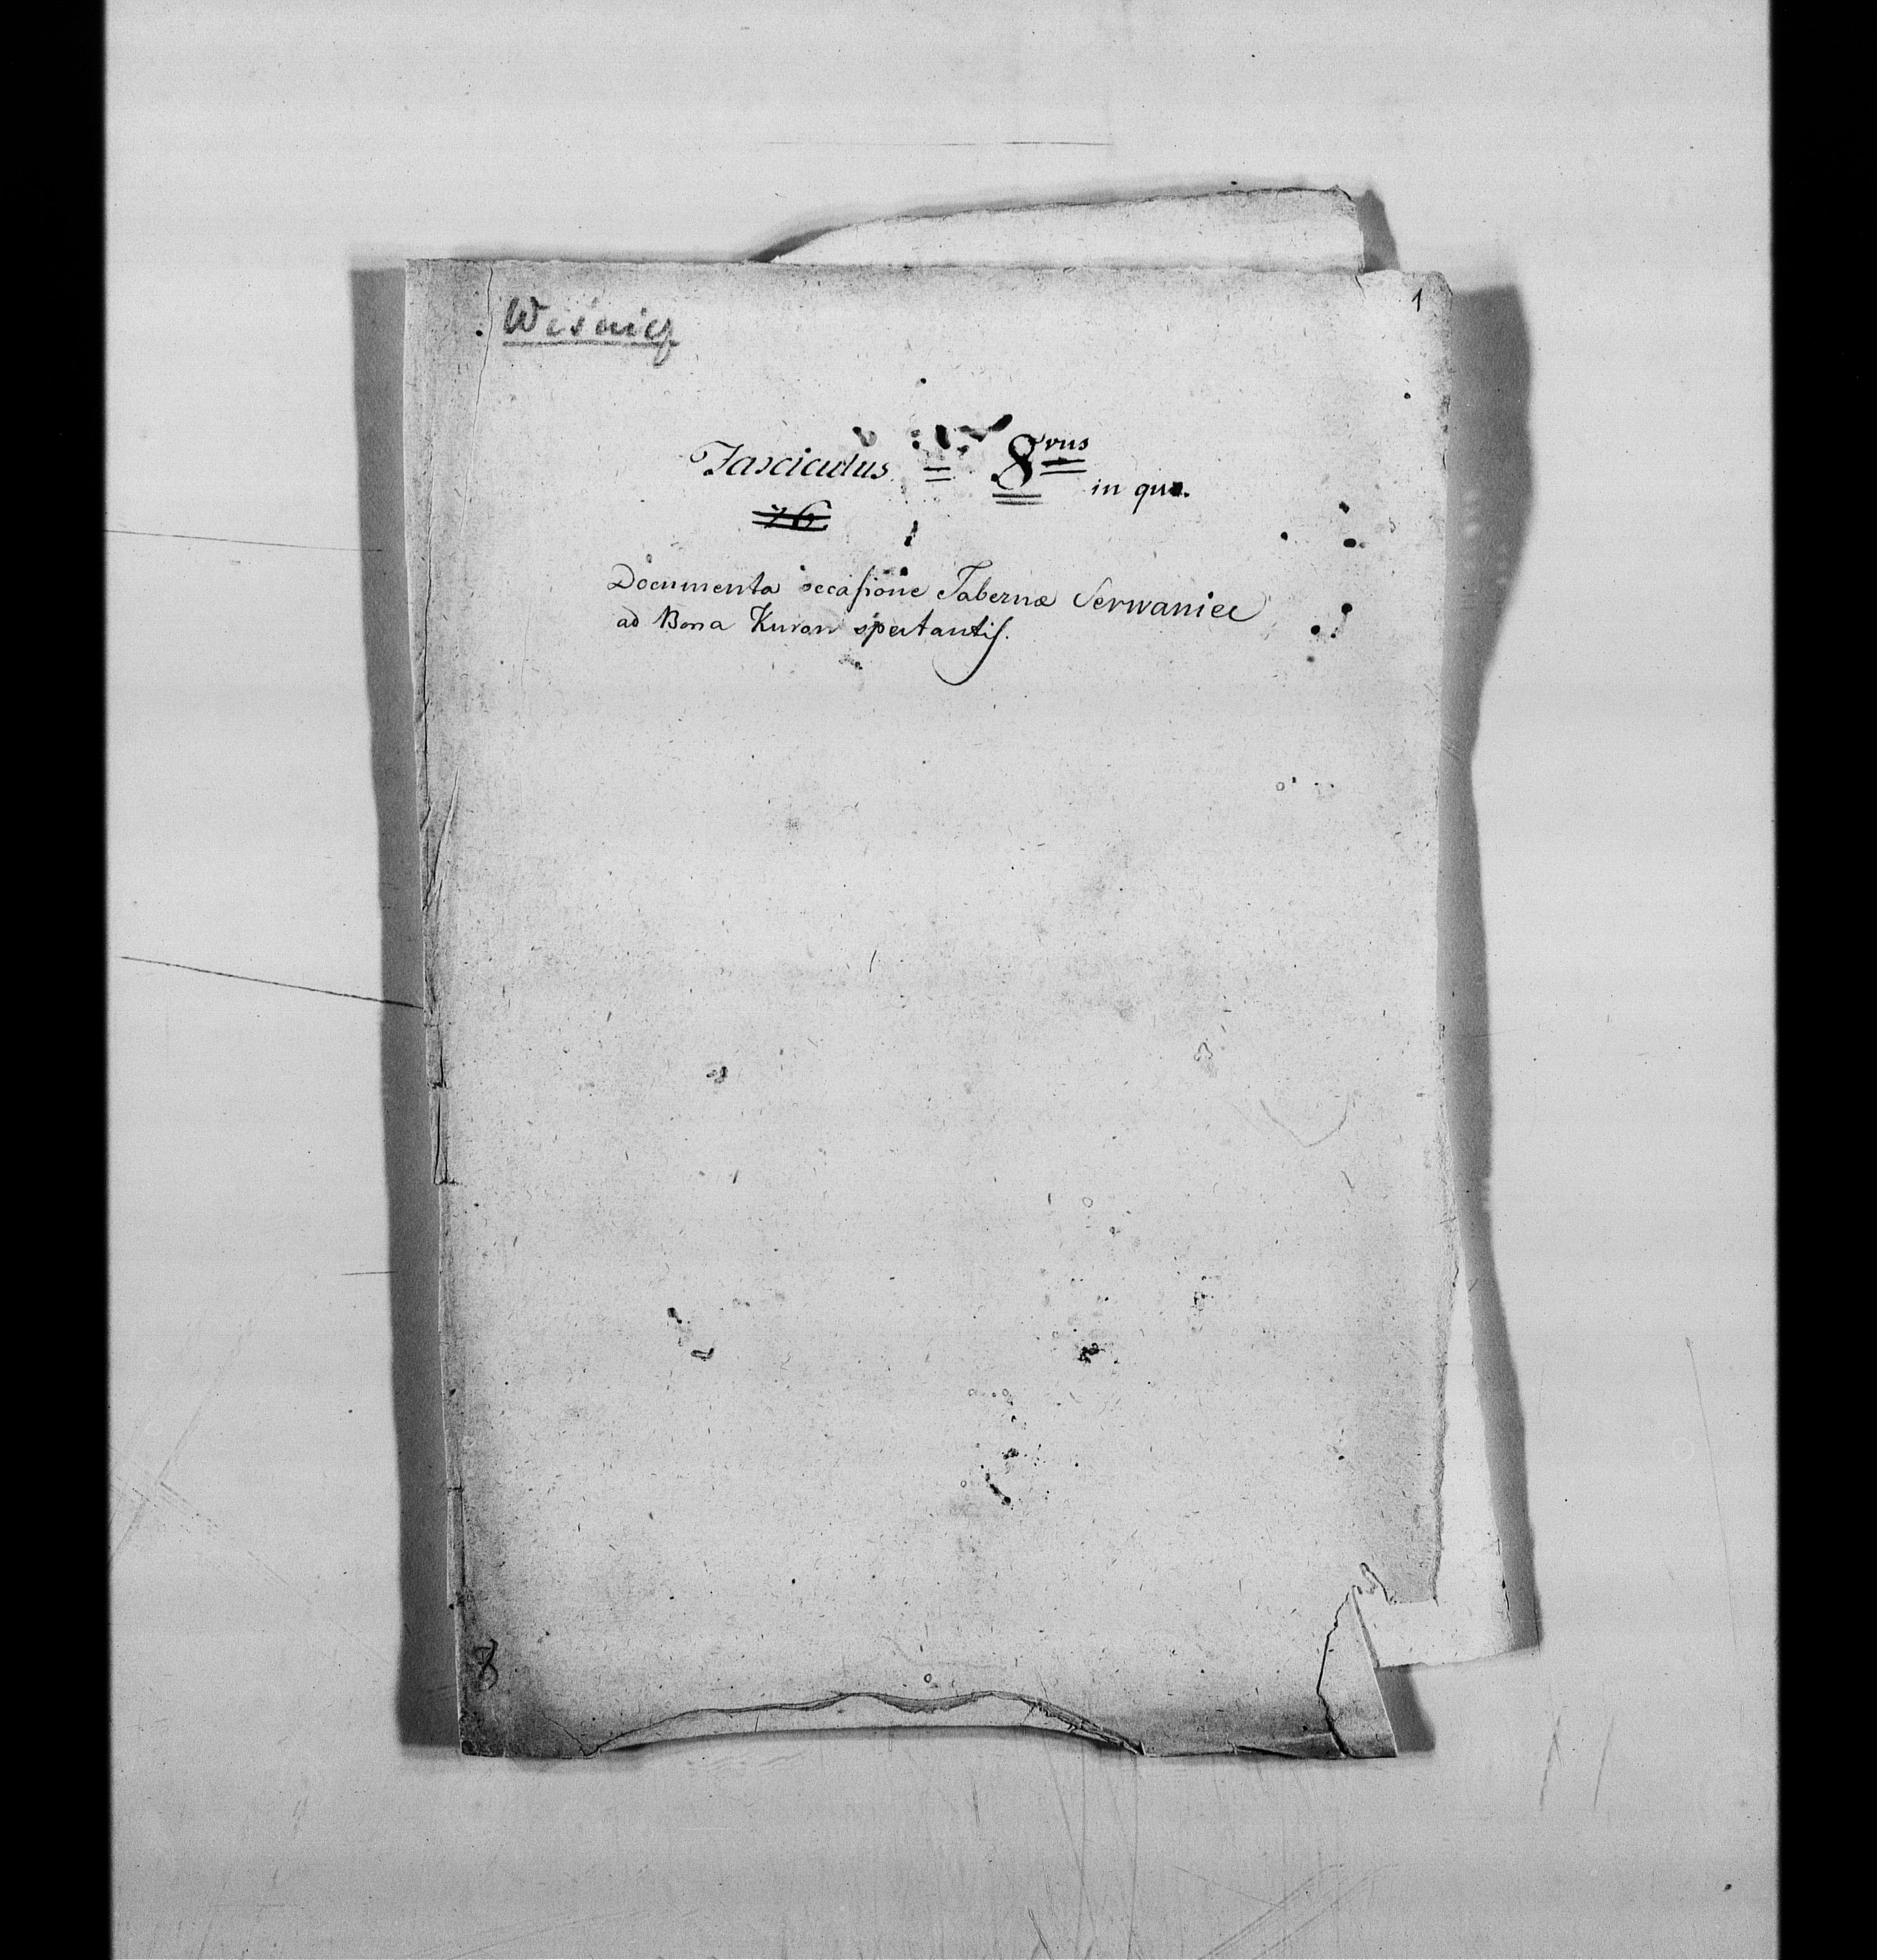 Wiśnicz
1
Fasciculus = 8vus
in quo.
76
Documenta occasione Tabernæ Serwaniec
ad Bona Kurow spectantis.
8